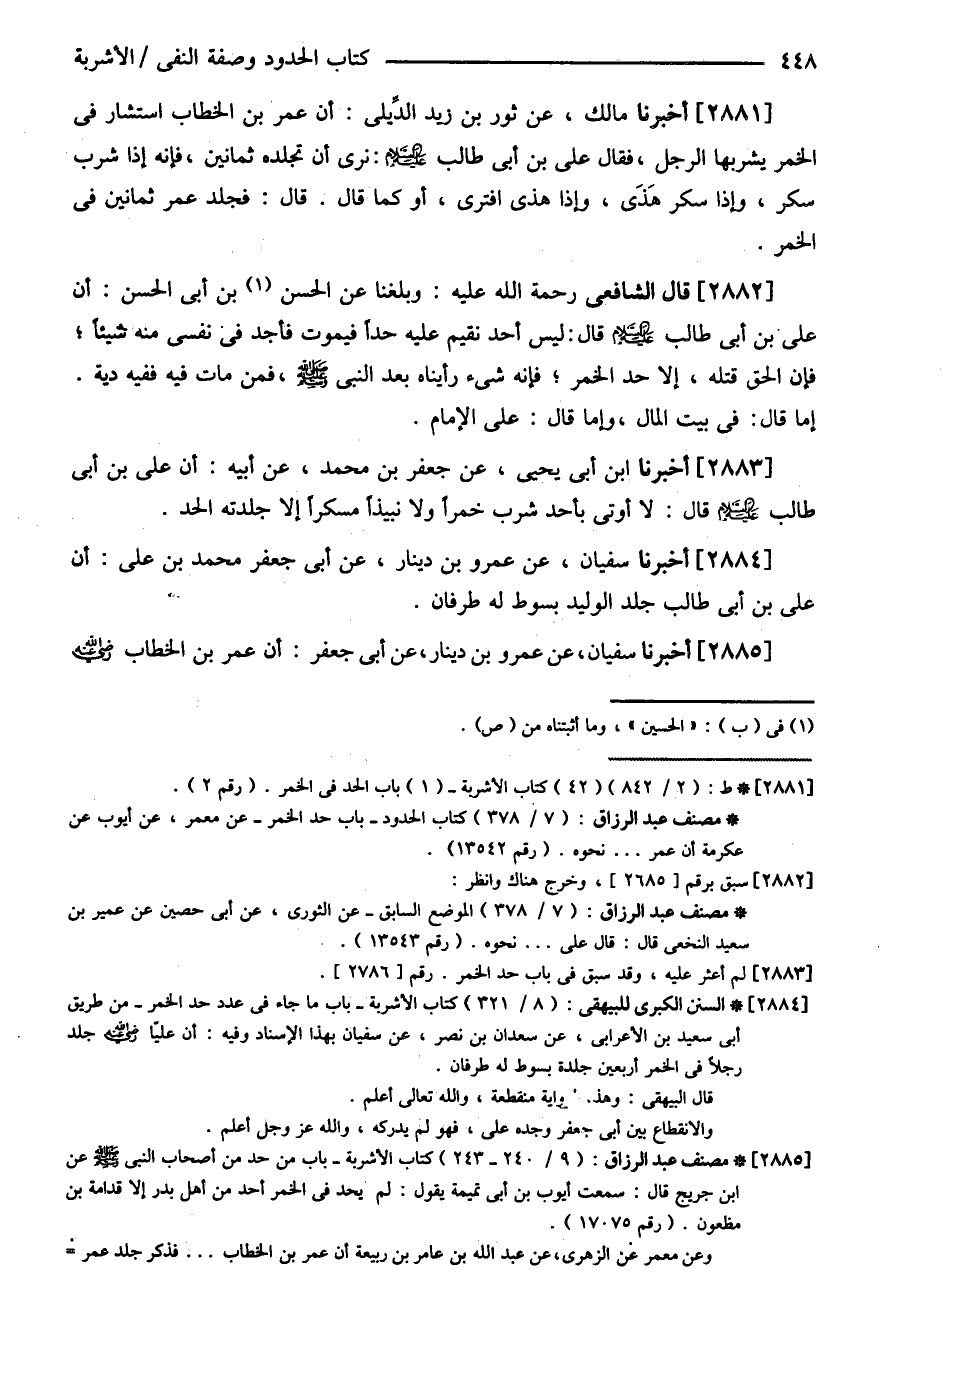 ٤٤٨ ــــــــــــــــــــــ كتاب الحدود وصفة النفى / الأشربة
[٢٨٨١] أخبرنا مالك ، عن ثور بن زيد الدِّيلى : أن عمر بن الخطاب استشار فى
الخمر يشربها الرجل ، فقال على بن أبى طالب عليه السلام : نرى أن تجلده ثمانين ، فإنه إذا شرب
سكر ، وإذا سكر هَذَى ، وإذا هذى افترى ، أو كما قال . قال : فجلد عمر ثمانين فى
الخمر .
[٢٨٨٢] قال الشافعى رحمة الله عليه : وبلغنا عن الحسن (١) بن أبى الحسن : أن
على بن أبى طالب عليه السلام قال : ليس أحد نقيم عليه حداً فيموت فأجد فى نفسى منه شيئاً ؛
فإن الحق قتله ، إلا حد الخمر ؛ فإنه شىء رأيناه بعد النبى ﷺ ، فمن مات فيه ففيه دية .
إما قال : فى بيت المال ، وإما قال : على الإمام .
[٢٨٨٣] أخبرنا ابن أبى يحيى ، عن جعفر بن محمد ، عن أبيه : أن على بن أبى
طالب عليه السلام قال : لا أوتى بأحد شرب خمراً ولا نبيذاً مسكراً إلا جلدته الحد .
[٢٨٨٤] أخبرنا سفيان ، عن عمرو بن دينار ، عن أبى جعفر محمد بن على : أن
على بن أبى طالب جلد الوليد بسوط له طرفان .
[٢٨٨٥] أخبرنا سفيان، عن عمرو بن دينار، عن أبى جعفر : أن عمر بن الخطاب رضي الله عنه
(١) فى ( ب ) : « الحسين » ، وما أثبتناه من ( ص) .
[٢٨٨١] * ط : ( ٢ / ٨٤٢ ) ( ٤٢ ) كتاب الأشربة ـ ( ١ ) باب الحد فى الخمر . ( رقم ٢ ) .
* مصنف عبد الرزاق : ( ٧ / ٣٧٨ ) كتاب الحدود ـ باب حد الخمر ـ عن معمر ، عن أيوب عن
عكرمة أن عمر ... نحوه . ( رقم ١٣٥٤٢) .
[٢٨٨٢] سبق برقم [ ٢٦٨٥ ] ، وخرج هناك وانظر :
* مصنف عبد الرزاق : ( ٧ / ٣٧٨ ) الموضع السابق ـ عن الثورى ، عن أبى حصين عن عمير بن
سعيد النخعى قال : قال على ... نحوه . ( رقم ١٣٥٤٣ ) .
[٢٨٨٣] لم أعثر عليه ، وقد سبق فى باب حد الخمر . رقم [ ٢٧٨٦ ] .
[٢٨٨٤] * السنن الكبرى للبيهقى : ( ٨ / ٣٢١ ) كتاب الأشربة ـ باب ما جاء فى عدد حد الخمر ـ من طريق
أبى سعيد بن الأعرابى ، عن سعدان بن نصر ، عن سفيان بهذا الإسناد وفيه : أن عليًا رضي الله عنه جلد
رجلاً فى الخمر أربعين جلدة بسوط له طرفان .
قال البيهقى : وهذ. ' واية منقطعة ، والله تعالى أعلم .
والانقطاع بين أبى جعفر وجده على ، فهو لم يدركه ، والله عز وجل أعلم .
[٢٨٨٥] * مصنف عبد الرزاق : ( ٩ / ٢٤٠ ـ ٢٤٣ ) كتاب الأشربة ـ باب من حد من أصحاب النبى ﷺ عن
ابن جريج قال : سمعت أيوب بن أبى تميمة يقول : لم يحد فى الخمر أحد من أهل بدر إلا قدامة بن
مظعون . ( رقم ١٧٠٧٥ ) .
وعن معمر عن الزهرى، عن عبد الله بن عامر بن ربيعة أن عمر بن الخطاب ... فذكر جلد عمر =